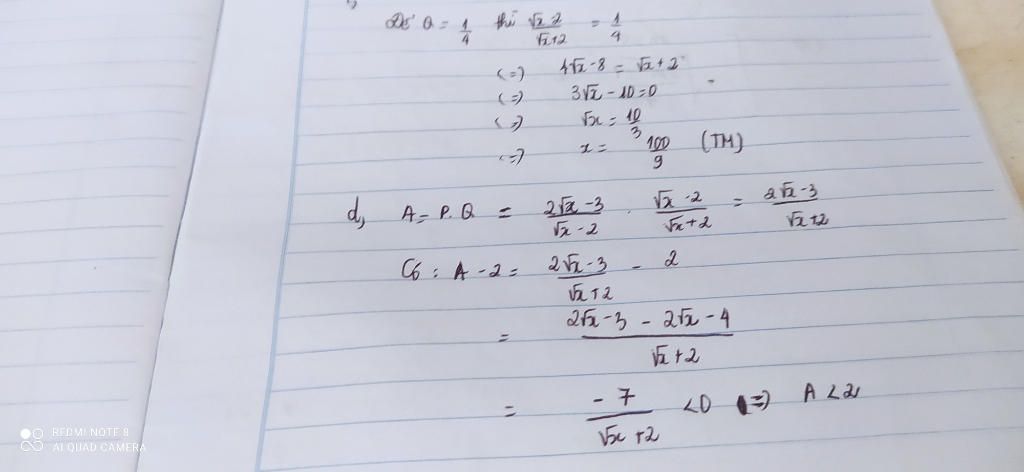 Để Q = 1/4 thì (√x-2)/(√x+2) = 1/4
<=> 4√x - 8 = √x + 2
<=> 3√x - 10 = 0
<=> √x = 10/3
<=> x = 100/9 (TM)
d, A = P.Q = (2√x-3)/(√x-2) . (√x-2)/(√x+2) = (2√x-3)/(√x+2)
Có : A - 2 = (2√x-3)/(√x+2) - 2
= (2√x-3 - 2√x-4)/(√x+2)
= -7/(√x+2) <0 <=> A < 2
REDMI NOTE 8
AI QUAD CAMERA